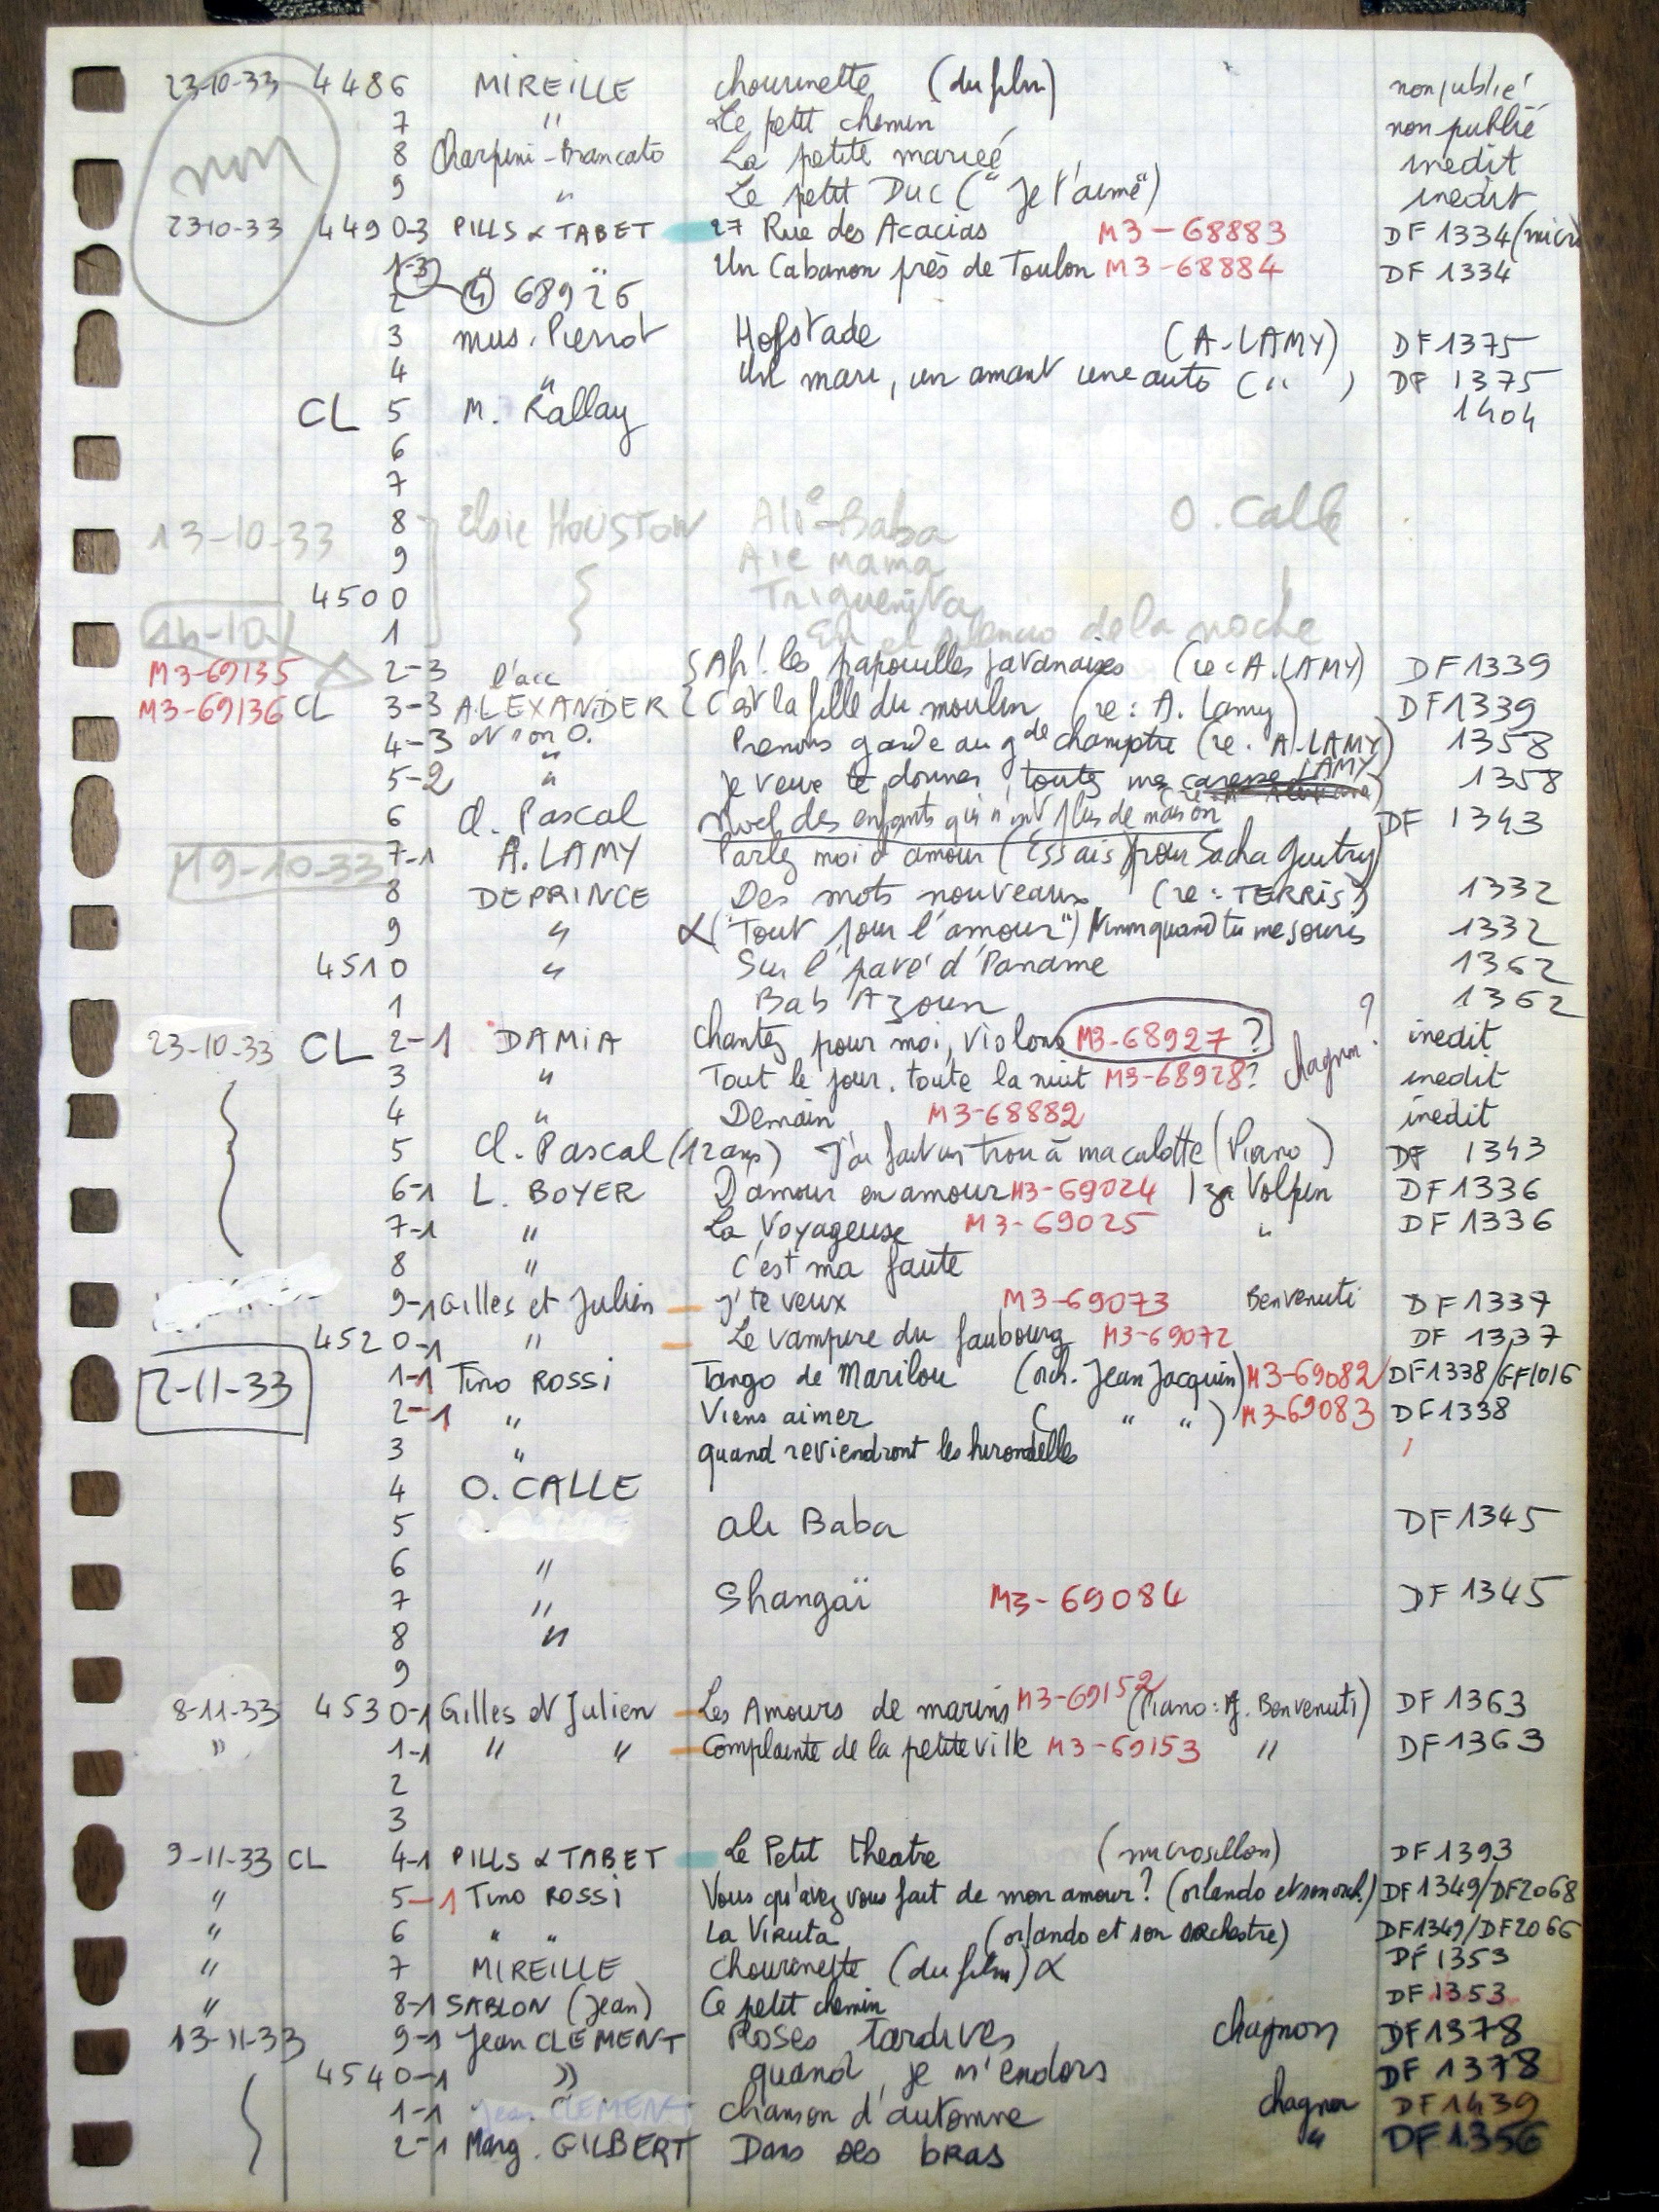 23-10-33 4486 MIREILLE chourinette (du film) non publié
7 " Le petit chemin non publié
non
8 Charpini-Brancato La petite mariée inedit
9 " Le petit Duc ("Je t'aime") inedit
23-10-33 4490-3 PILLS & TABET 27 Rue des Acacias M3-68883 DF 1334 (micro
1-3 " " Un Cabanon près de Toulon M3-68884 DF 1334
2 4 68926
3 mus. Pierrot Hofstade (A-LAMY) DF 1375
4 " Un mari, un amant une auto ( " ) DF 1375
CL 5 M. Kallay 1404
6
7
13-10-33 8 Elsie HOUSTON Ali-Baba O. Calle
9 Aïe Mama
4500 Triguenita
14-10 1 En el silencio de la noche
M3-69135 2-3 l'acc Ah! les papouilles javanaises (re: A. LAMY) DF 1339
M3-69136 CL 3-3 ALEXANDER C'est la fille du moulin (re: A. Lamy) DF 1339
4-3 et son O. " Prenons garde au gde champtre (re. A-LAMY) 1358
5-2 " Je veux te donner toutes mes LAMY 1358
6 Cl. Pascal Noel des enfants qui n'ont plus de maison DF 1343
19-10-33 7-1 A. LAMY Parlez moi d'amour (Essais) pour Sacha Guitry
8 DEPRINCE Des mots nouveaux (re: TERRIS) 1332
9 " α ("Tout pour l'amour") Ninon quand tu me souris 1332
4510 " Sur l'pavé d'Paname 1362
1 Bab Azoun 1362
23-10-33 CL 2-1 DAMIA Chantez pour moi, violons M3-68927 ? chagnon? ? inedit
3 " Tout le jour, toute la nuit M3-68928? inedit
4 " Demain M3-68882 inedit
5 Cl. Pascal (12 ans) J'ai fait un trou à ma culotte (Piano) DF 1343
6-1 L. BOYER D'amour en amour M3-69024 Iza Volpin DF 1336
7-1 " La Voyageuse M3-69025 " DF 1336
8 " C'est ma faute
9-1 Gilles et Julien J'te veux M3-69073 Benvenuti DF 1337
4520-1 " Le vampire du faubourg M3-69072 DF 1337
2-11-33 1-1 Tino ROSSI Tango de Marilou (orch. Jean Jacquin) M3-69082 DF1338/GF1016
2-1 " Viens aimer ( " " ) M3-69083 DF 1338
3 " quand reviendront les hirondelles
4 O. CALLE
5 Ali Baba DF 1345
6 "
7 " Shangaï M3-69084 DF 1345
8 "
9
8-11-33 4530-1 Gilles et Julien Les Amours de marins M3-69152 (Piano: A. Benvenuti) DF 1363
" 1-1 " " Complainte de la petite ville M3-69153 " DF 1363
2
3
9-11-33 CL 4-1 PILLS & TABET Le Petit theatre (microsillon) DF 1393
" 5-1 Tino ROSSI Vous qu'avez vous fait de mon amour? (orlando et son orch.) DF 1349/DF2068
" 6 " " La Viruta (orlando et son orchestre) DF1349/DF2066
" 7 MIREILLE Chourinette (du film) α DF 1353
" 8-1 SABLON (Jean) Ce petit chemin DF 1353
13-11-33 9-1 Jean CLEMENT Roses tardives chagnon DF1378
4540-1 " quand je m'endors DF 1378
1-1 Jean CLEMENT chanson d'automne chagnon DF 1439
2-1 Marg. GILBERT Dans ses bras " DF 1356